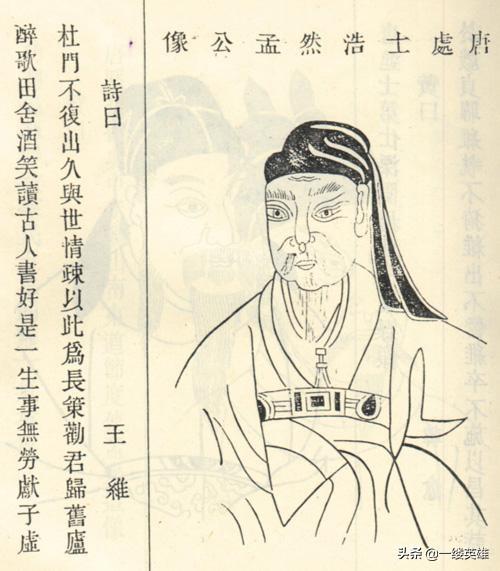 唐處士浩然孟公像
詩曰 王維
杜門不復出久與世情疎以此爲長策勸君歸舊廬
醉歌田舍酒笑讀古人書好是一生事無勞獻子虛
头条 @一缕英雄